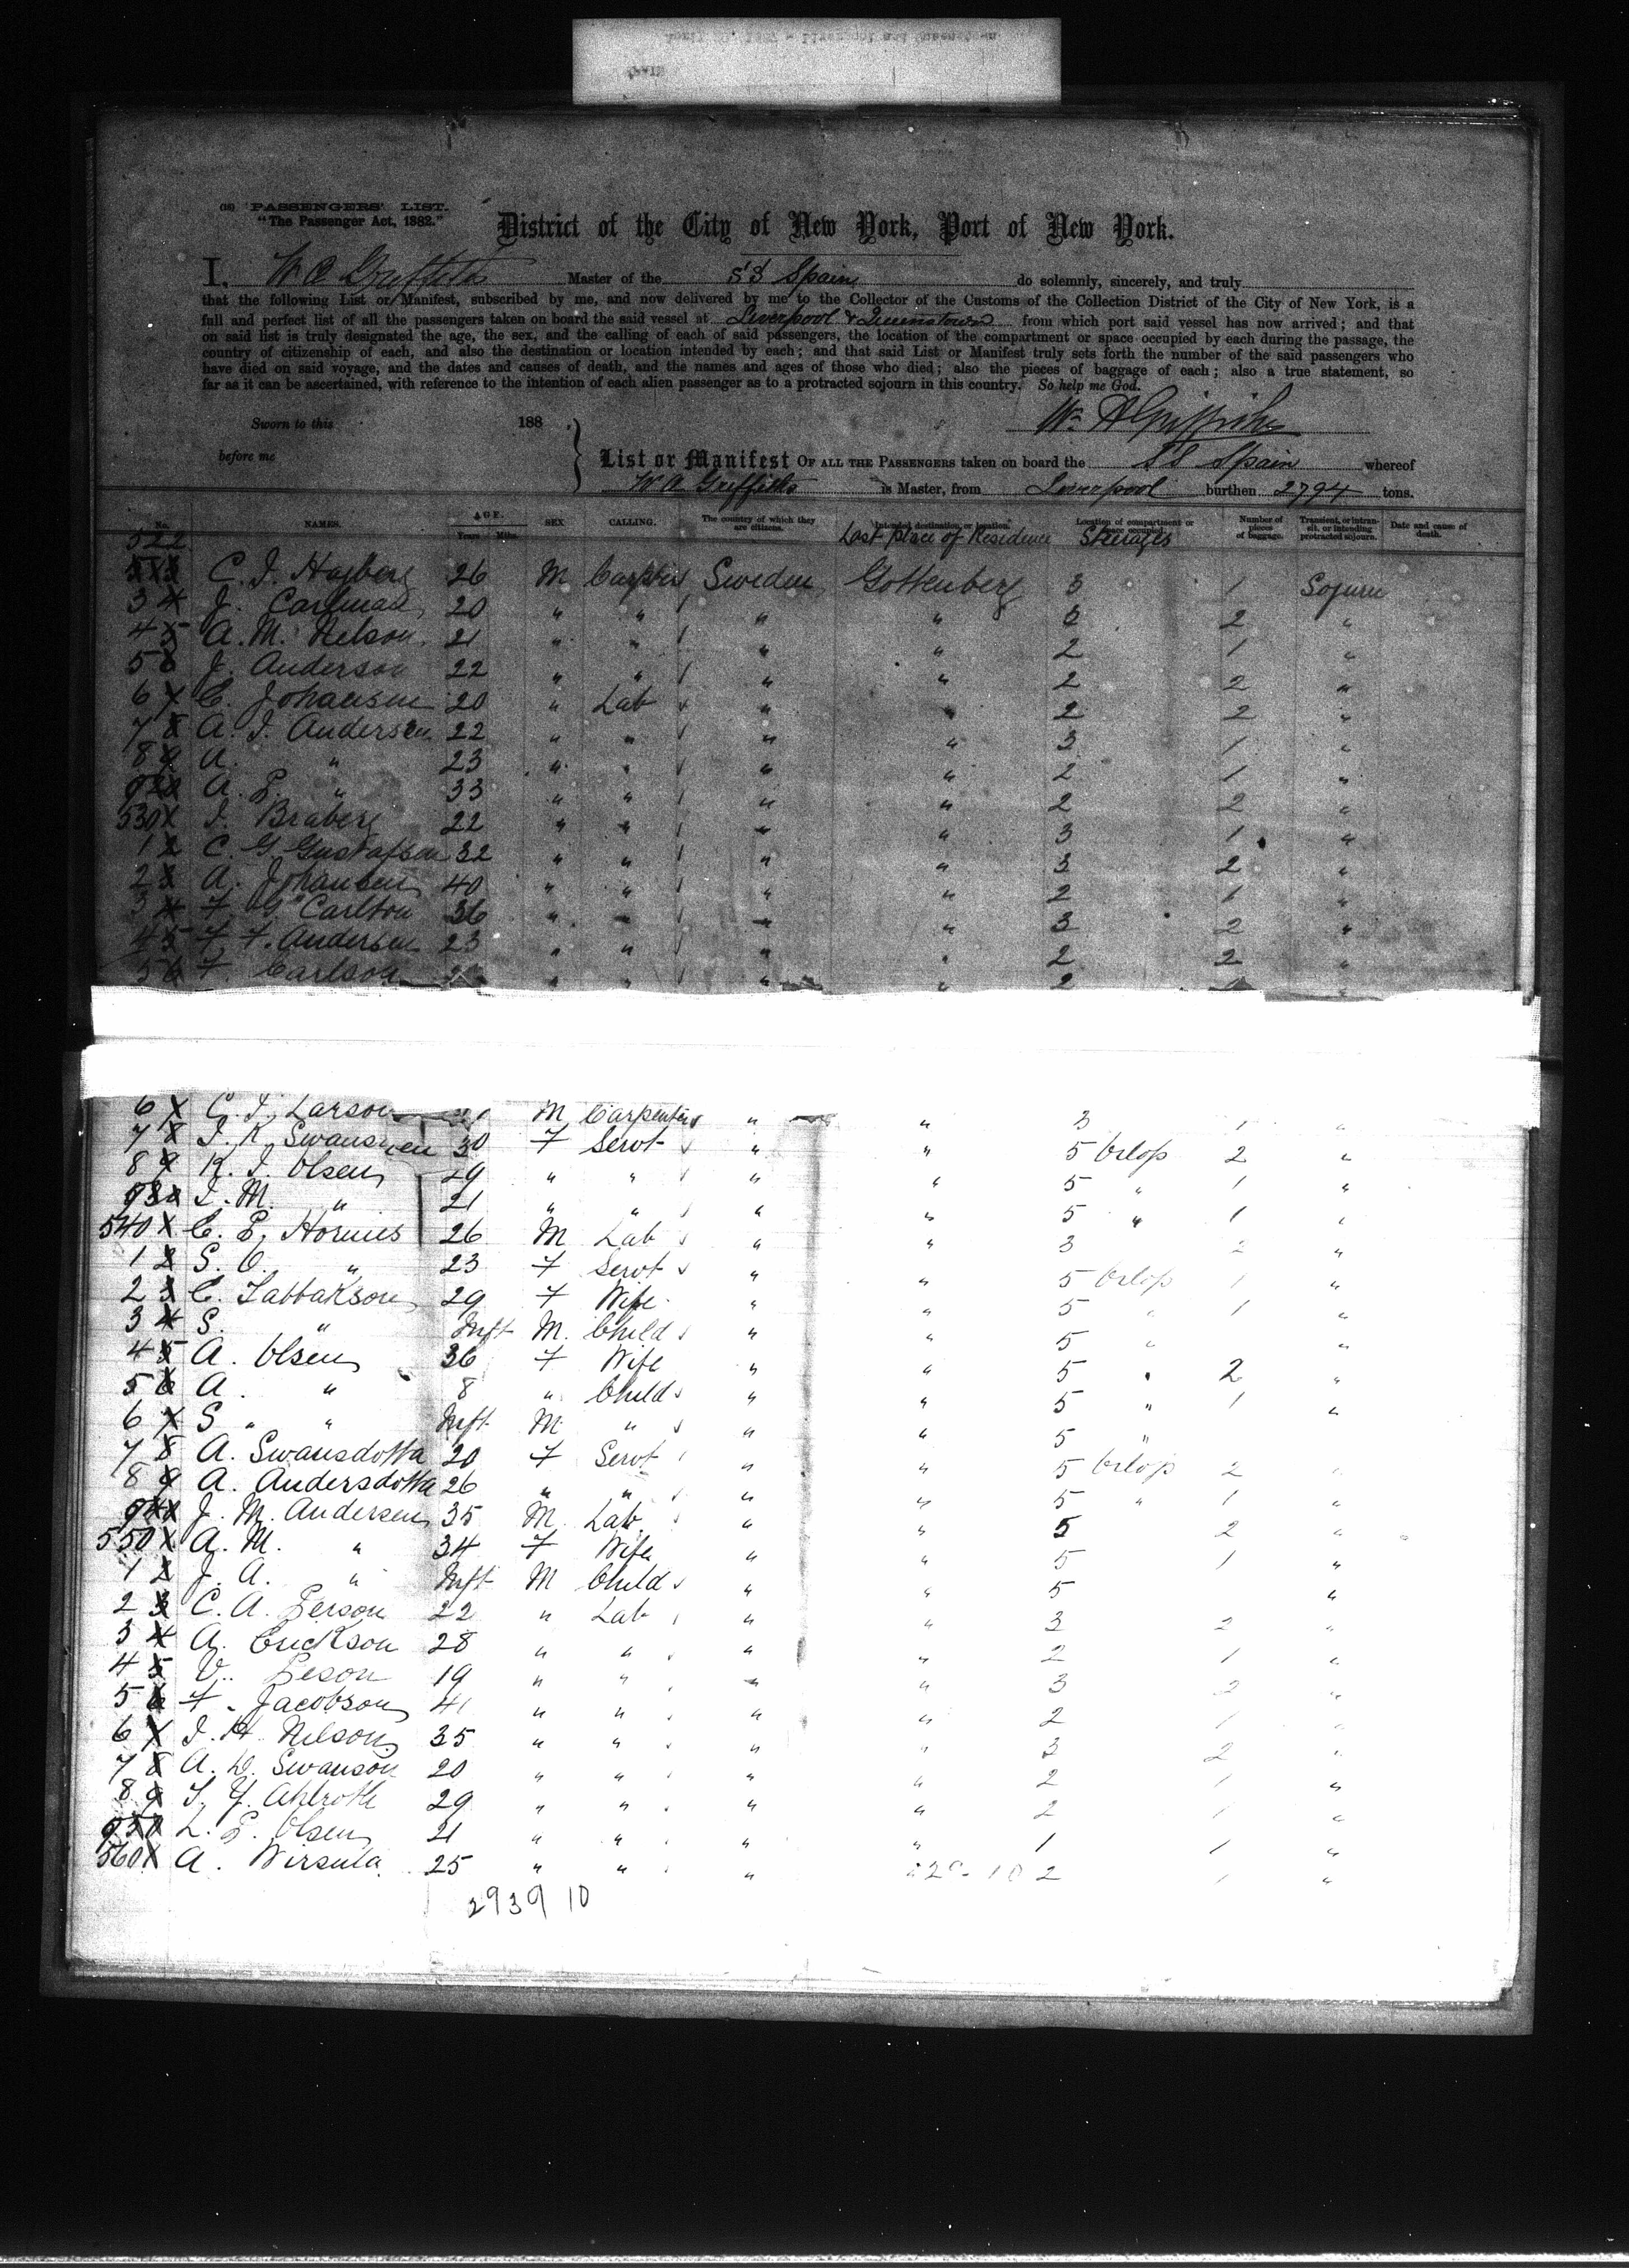 PASSENGERS' LIST.
"The Passenger Act, 1882."
District of the City of New York, Port of New York.
I, W A Griffiths Master of the SS Spain do solemnly, sincerely, and truly
that the following List or Manifest, subscribed by me, and now delivered by me to the Collector of the Customs of the Collection District of the City of New York, is a
full and perfect list of all the passengers taken on board the said vessel at Liverpool & Queenstown from which port said vessel has now arrived; and that
on said list is truly designated the age, the sex, and the calling of each of said passengers, the location of the compartment or space occupied by each during the passage, the
country of citizenship of each, and also the destination or location intended by each; and that said List or Manifest truly sets forth the number of the said passengers who
have died on said voyage, and the dates and causes of death, and the names and ages of those who died; also the pieces of baggage of each; also a true statement, so
far as it can be ascertained, with reference to the intention of each alien passenger as to a protracted sojourn in this country. So help me God.
Sworn to this 188 .
Wm A Griffiths
before me
List or Manifest OF ALL THE PASSENGERS taken on board the SS Spain whereof
W A Griffiths is Master, from Liverpool burthen 2794 tons.
No. NAMES. AGE. Years Mths. SEX CALLING. The country of which they are citizens. Intended destination or location. Last Place of Residence Location of compartment or space occupied. Steerages Number of pieces of baggage. Transient, or in transit, or intending protracted sojourn. Date and cause of death.
522
C. J. Hagberg 26 M Sweden Gottenberg 3 1
3 4 J. Carlman 20 " " " " 2 "
4 5 A. M. Nelson 21 " " " " 2 1 "
5 6 J. Anderson 22 " " " " 2 2 "
6 C. Johansen 20 " Lab " " 2 2 "
7 8 A. J. Andersen 22 " " " " 3 1 "
8 9 A. " 23 " " " " 2 1 "
A. P. " 33 " " " " 2 2 "
530 J. Braberg 22 " " " " 3 1 "
1 2 C. G Gustafsen 32 " " " " 3 2 "
2 3 A. Johansen 40 " " " " 2 1 "
3 4 F G Carlson 36 " " " " 3 2 "
4 5 F. F. Andersen 23 " " " " 2 2 "
5 6 F. Carlson " " " " 2
6 C. J. Larson M Carpenter " " 3 1 "
7 8 J. K. Swansnen 30 F Servt " " 5 Orlop 2 "
8 9 K. J. Olsen 29 " " " " 5 " 1 "
J. M. " 21 " " " " 5 " 1 "
540 C. P. Hornes 26 M Lab " " 3 2 "
1 2 S. O. " 23 F Servt " " 5 Orlop 1 "
2 3 C. 29 F Wife " " 5 " 1 "
3 4 S. " Inft M. Child " " 5 " "
4 5 A. Olsen 36 F Wife " " 5 " 2 "
5 6 A. " 8 " Child " " 5 " 1 "
6 S " " Inft M " " " 5 "
7 8 A. Swansdotta 20 F Servt " " 5 Orlop 2 "
8 9 A. Andersdotta 26 " " " " 5 " 1 "
J. M. Andersen 35 M Lab " " 5 2 "
550 A. M. " 34 F Wife " " 5 1 "
1 2 J. A. " Inft M Child " " 5 "
2 3 C. A. Person 22 " Lab " " 3 2 "
3 4 A. Erickson 28 " " " " 2 1 "
4 5 V. Peson 19 " " " " 3 2 "
5 6 F. Jacobson 41 " " " " 2 1 "
6 J. H. Nelson 35 " " " " 3 2 "
7 8 A. D. Swanson 20 " " " " 2 1 "
8 9 Ahlroth 29 " " " " 2 1 "
L. P. Olsen 21 " " " " 1 1 "
560 A. Wirsula 25 " " " " 2 1 "
2939 10